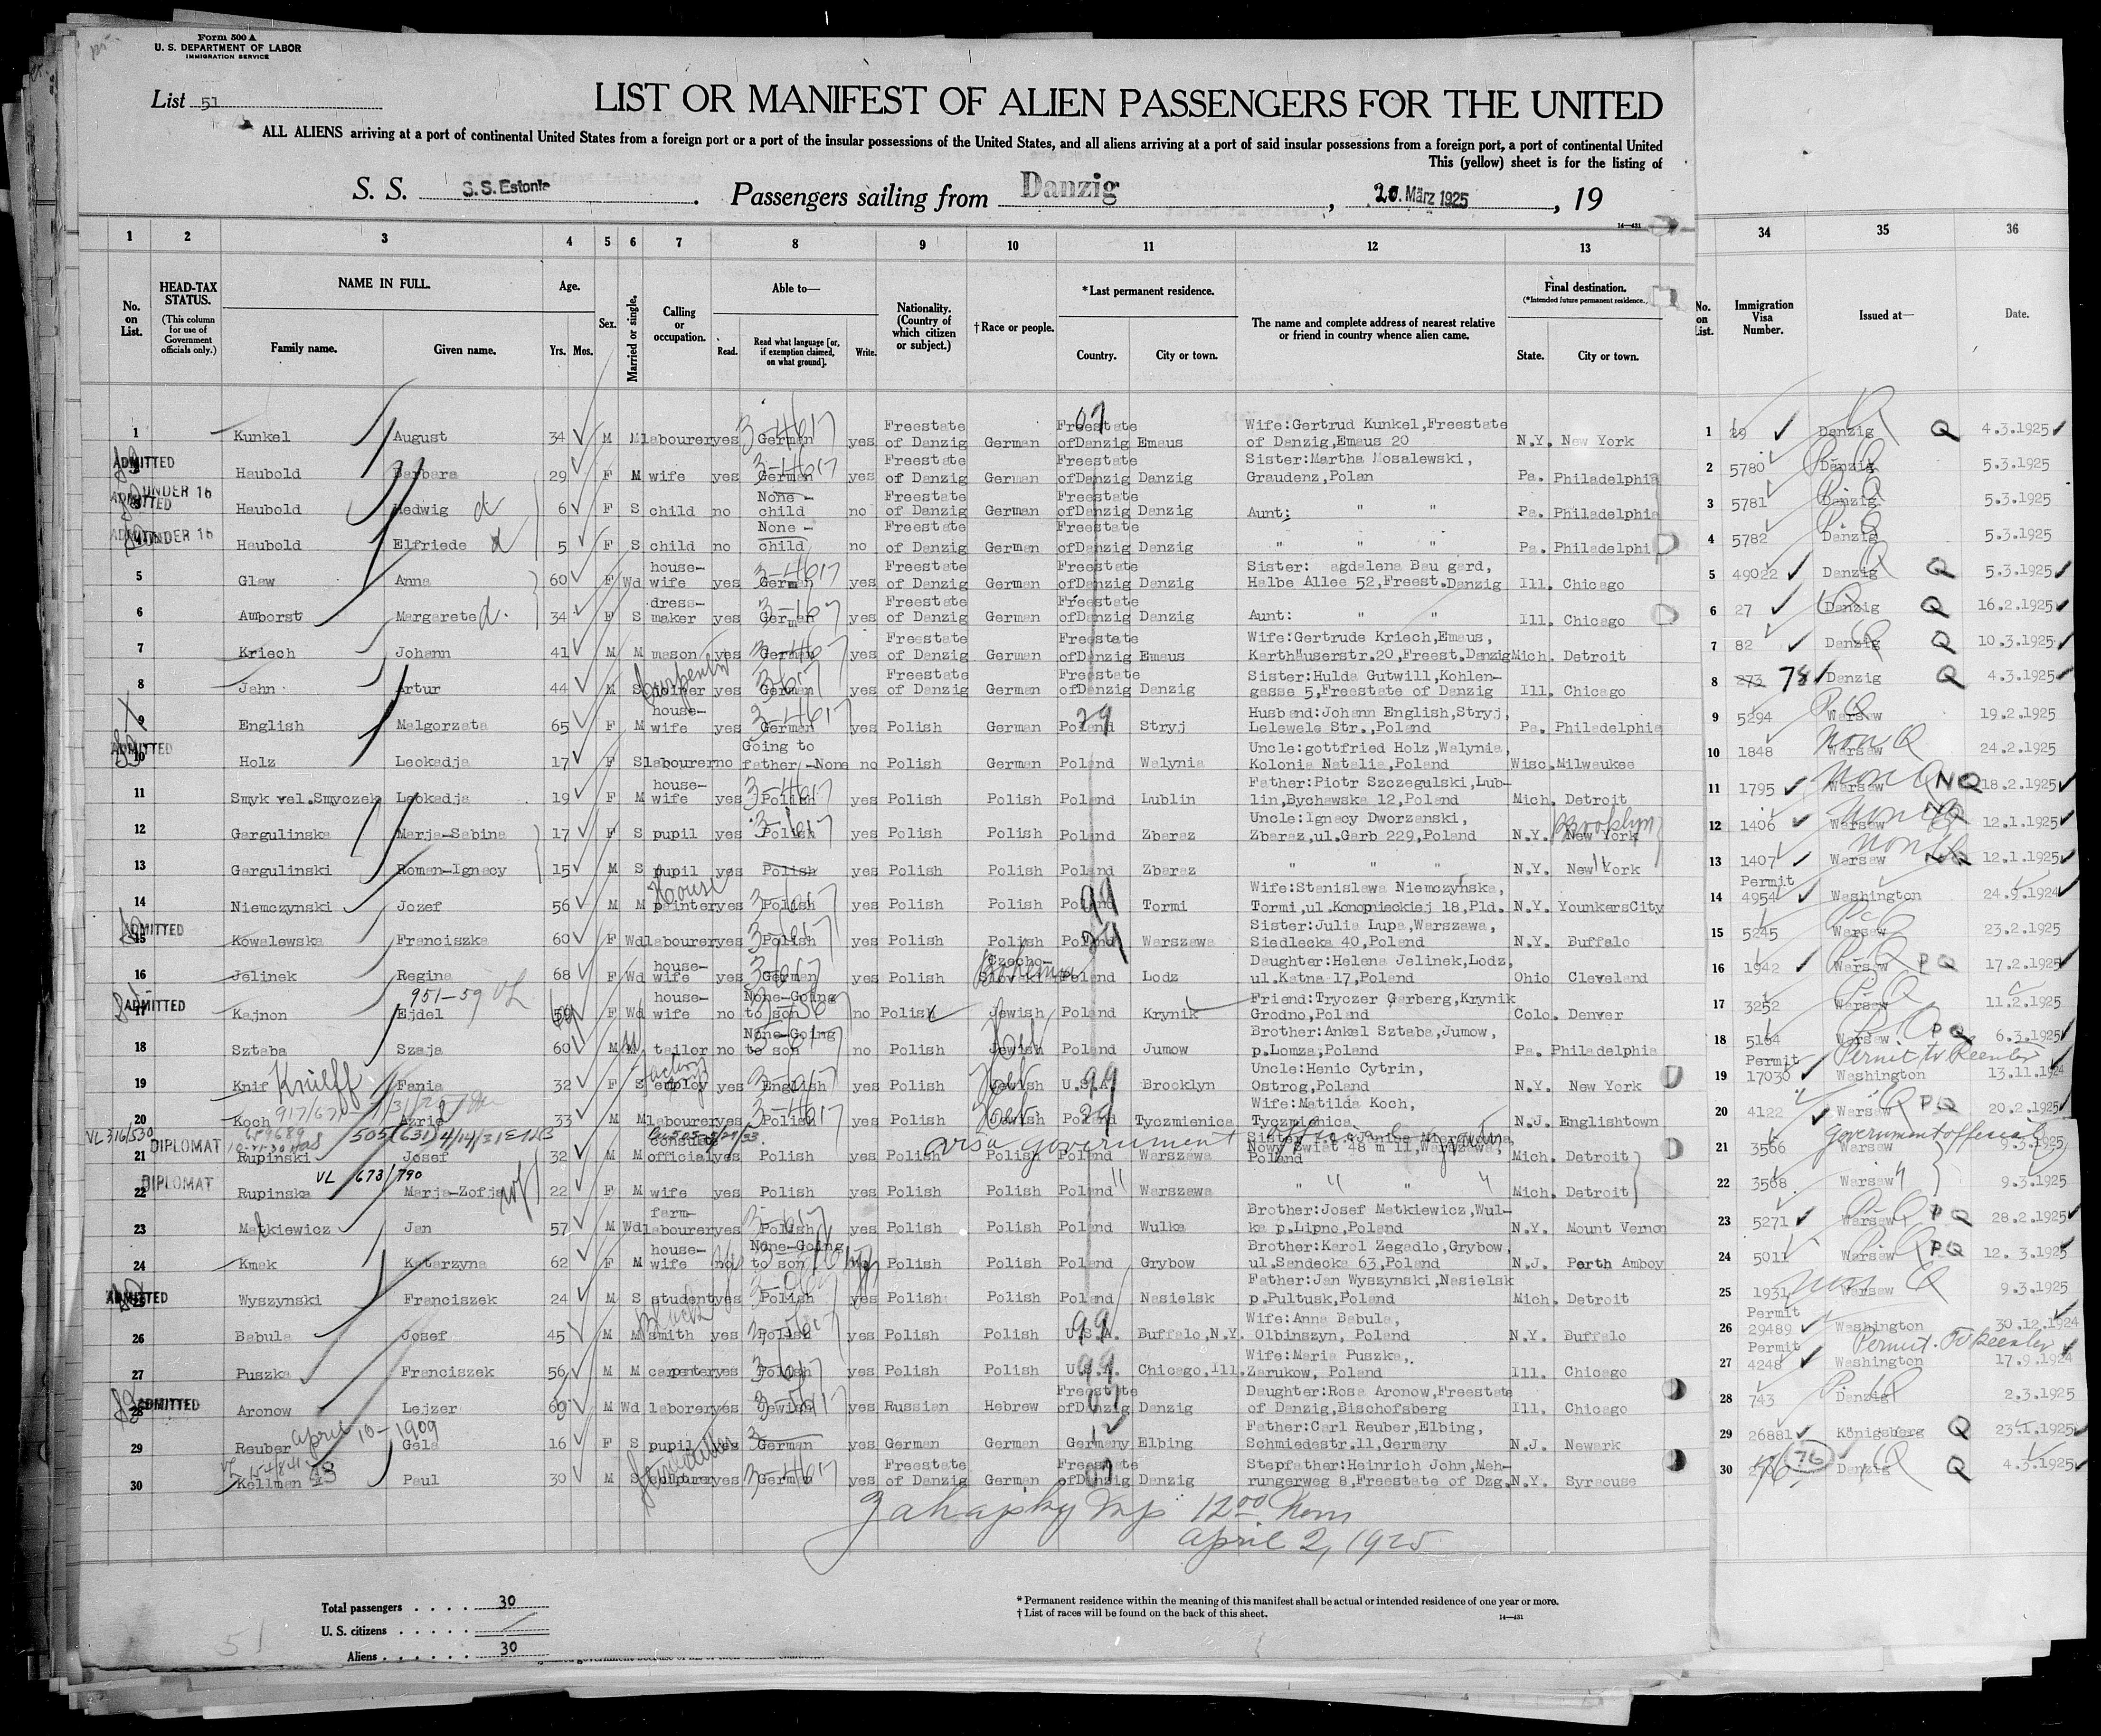 Form 500 A
U. S. DEPARTMENT OF LABOR
IMMIGRATION SERVICE
List 51
LIST OR MANIFEST OF ALIEN PASSENGERS FOR THE UNITED
ALL ALIENS arriving at a port of continental United States from a foreign port or a port of the insular possessions of the United States, and all aliens arriving at a port of said insular possessions from a foreign port, a port of continental United
This (yellow) sheet is for the listing of
S. S. S.S. Estonia. Passengers sailing from Danzig, 20. März 1925, 19
14—431
1 2 3 4 5 6 7 8 9 10 11 12 13 34 35 36
No. on List. HEAD-TAX STATUS. (This column for use of Government officials only.) NAME IN FULL. Family name. Given name. Age. Yrs. Mos. Sex. Married or single. Calling or occupation. Able to— Read. Read what language [or, if exemption claimed, on what ground]. Write. Nationality. (Country of which citizen or subject.) †Race or people. *Last permanent residence. Country. City or town. The name and complete address of nearest relative or friend in country whence alien came. Final destination. (*Intended future permanent residence.) State. City or town. No. on List. Immigration Visa Number. Issued at— Date.
1 Kunkel August 34 M M labourer yes German yes Freestate of Danzig German Freestate ofDanzig Emaus Wife:Gertrud Kunkel,Freestate of Danzig,Emaus 20 N.Y. New York 1 29 Danzig Q 4.3.1925
ADMITTED Haubold Barbara 29 F M wife yes German yes Freestate of Danzig German Freestate ofDanzig Danzig Sister:Martha Mosalewski, Graudenz,Polan Pa. Philadelphia 2 5780 Danzig 5.3.1925
ADMITTED UNDER 16 Haubold Hedwig 6 F S child no None - child no Freestate of Danzig German Freestate ofDanzig Danzig Aunt: " " Pa. Philadelphia 3 5781 Danzig 5.3.1925
ADMITTED UNDER 16 Haubold Elfriede 5 F S child no None - child no Freestate of Danzig German Freestate ofDanzig Danzig " " " Pa. Philadelphi 4 5782 Danzig 5.3.1925
5 Glaw Anna 60 F Wd house-wife yes German yes Freestate of Danzig German Freestate ofDanzig Danzig Sister: agdalena Bau gard, Halbe Allee 52,Freest.Danzig Ill. Chicago 5 49022 Danzig Q 5.3.1925
6 Amborst Margarete 34 F S dress-maker yes German yes Freestate of Danzig German Freestate ofDanzig Danzig Aunt: " " Ill. Chicago 6 27 Danzig Q 16.2.1925
7 Kriech Johann 41 M M mason yes German yes Freestate of Danzig German Freestate ofDanzig Emaus Wife:Gertrude Kriech,Emaus, Karthäuserstr.20,Freest.Danzig Mich. Detroit 7 82 Danzig Q 10.3.1925
8 Jahn Artur 44 M S Carpenter yes German yes Freestate of Danzig German Freestate ofDanzig Danzig Sister:Hulda Gutwill,Kohlen-gasse 5,Freestate of Danzig Ill. Chicago 8 273 78 Danzig Q 4.3.1925
9 English Malgorzata 65 F M house-wife yes German yes Polish German Poland Stryj Husband:Johann English,Stryj, Lelewele Str.,Poland Pa. Philadelphia 9 5294 Warsaw 19.2.1925
ADMITTED 10 Holz Leokadja 17 F S labourer no Going to father-None no Polish German Poland Walynia Uncle:gottfried Holz,Walynia, Kolonia Natalia,Poland Wisc. Milwaukee 10 1848 non Q Warsaw 24.2.1925
11 Smyk vel.Smyczek Leokadja 19 F M house-wife yes Polish yes Polish Polish Poland Lublin Father:Piotr Szczegulski,Lub-lin,Bychawska 12,Poland Mich. Detroit 11 1795 Warsaw NQ 18.2.1925
12 Gargulinska Marja-Sabina 17 F S pupil yes Polish yes Polish Polish Poland Zbaraz Uncle:Ignacy Dworzanski, Zbaraz,ul.Garb 229,Poland N.Y. New York Brooklyn 12 1406 Warsaw 12.1.1925
13 Gargulinski Roman-Ignacy 15 M S pupil yes Polish yes Polish Polish Poland Zbaraz " " " N.Y. New York 13 1407 Warsaw 12.1.1925
14 Niemczynski Jozef 56 M M House painter yes Polish yes Polish Polish Poland Tormi Wife:Stanislawa Niemczynska, Tormi,ul.Konopnieckiej 18,Pld. N.Y. YounkersCity 14 Permit 4954 Washington 24.9.1924
ADMITTED 15 Kowalewska Franciszka 60 F Wd labourer yes Polish yes Polish Polish Poland Warszawa Sister:Julia Lupa,Warszawa, Siedlecka 40,Poland N.Y. Buffalo 15 5245 Warsaw 23.2.1925
16 Jelinek Regina 68 F Wd house-wife yes German yes Polish Czecho-Slovakian Bohemian Poland Lodz Daughter:Helena Jelinek,Lodz, ul.Katna 17,Poland Ohio Cleveland 16 1942 Warsaw PQ 17.2.1925
951-59
ADMITTED 17 Kajnon Ejdel 59 F Wd house-wife no None-Going to son no Polish Jewish Poland Krynik Friend:Tryczer Garberg,Krynik Grodno,Poland Colo. Denver 17 3252 Warsaw 11.2.1925
18 Sztaba Szaja 60 M M tailor no None-Going to son no Polish Jewish Poland Jumow Brother:Ankel Sztaba,Jumow, p.Lomza,Poland Pa. Philadelphia 18 5164 Warsaw PQ 6.3.1925
19 Knif Knieff Fania 32 F S factory employ yes English yes Polish Jewish U.S.A. Brooklyn Uncle:Henic Cytrin, Ostrog,Poland N.Y. New York 19 Permit 17030 Permit to Reenter Washington 13.11.1924
20 Koch Azriel 33 M M labourer yes Polish yes Polish Jewish Poland Tyczmienica Wife:Matilda Koch, Tyczmienica N.J. Englishtown 20 4122 Warsaw PQ 20.2.1925
visa government official
DIPLOMAT 21 Rupinski Josef 32 M M official yes Polish yes Polish Polish Poland Warszawa Nowy Swiat 48 m 11,Warszawa, Poland Mich. Detroit 21 3566 Government official Warsaw 9.3.1925
VL 673/790
DIPLOMAT 22 Rupinska Marja-Zofja 22 F M wife yes Polish yes Polish Polish Poland Warszawa " " Mich. Detroit 22 3568 Warsaw 9.3.1925
23 Matkiewicz Jan 57 M Wd farm-labourer yes Polish yes Polish Polish Poland Wulka Brother:Josef Matkiewicz,Wul-ka p.Lipno,Poland N.Y. Mount Vernon 23 5271 Warsaw PQ 28.2.1925
24 Kmak Katarzyna 62 F M house-wife no None-Going to son no Polish Polish Poland Grybow Brother:Karol Zegadlo,Grybow, ul.Sandecka 63,Poland N.J. Perth Amboy 24 5011 Warsaw PQ 12. 3.1925
ADMITTED 25 Wyszynski Franciszek 24 M S student yes Polish yes Polish Polish Poland Nasielsk Father:Jan Wyszynski,Nasielsk p.Pultusk,Poland Mich. Detroit 25 1931 non Q Warsaw 9.3.1925
26 Babula Josef 45 M M Black smith yes Polish yes Polish Polish U.S.A. Buffalo,N.Y. Wife:Anna Babula, Olbinszyn, Poland N.Y. Buffalo 26 Permit 29489 Washington 30.12.1924
27 Puszka Franciszek 56 M M carpenter yes Polish yes Polish Polish U.S.A. Chicago,Ill. Wife:Maria Puszka, Zarukow, Poland Ill. Chicago 27 Permit 4248 Permit To Reenter Washington 17.9.1924
ADMITTED 28 Aronow Lejzer 60 M Wd laborer yes Jewish yes Russian Hebrew Freestate ofDanzig Danzig Daughter:Rosa Aronow,Freestate of Danzig,Bischofsberg Ill. Chicago 28 743 Danzig 2.3.1925
april 10-1909
29 Reuber Gela 16 F S pupil yes German yes German German Germany Elbing Father:Carl Reuber,Elbing, Schmiedestr.11,Germany N.J. Newark 29 26881 Königsberg Q 23.1.1925
30 Kellman Paul 30 M S yes German yes Freestate of Danzig German Freestate ofDanzig Danzig Stepfather:Heinrich John,Meh-rungerweg 8,Freestate of Dzg. N.Y. Syracuse 30 76 Danzig Q 4.3.1925
12 00 Noon
april 2, 1925
Total passengers . . . . 30
U. S. citizens . . . . .
Aliens . . . . . . 30
* Permanent residence within the meaning of this manifest shall be actual or intended residence of one year or more.
† List of races will be found on the back of this sheet.
14—431
51